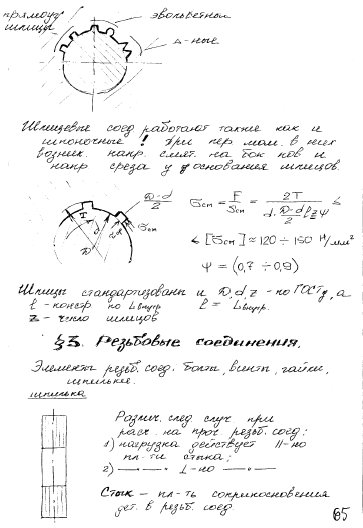 прямоуг
шлицы
эвольвентн
Δ-ные
Шлицевые соед работают такие как и
шпоночные! При пер мом. в них
возник. напр. смят. на бок пов и
напр среза у основания шлицов.
D-d
2
T
d
D
σсм
σсм = F/Sсм = 2T / d · D-d/2 · l z ψ ≤
≤ [σсм] ≈ 120 ÷ 150 Н/мм²
ψ = (0,7 ÷ 0,9)
Шлицы стандартизованы и D, d, z - по ГОСТу, а
l - констр по Lвнутр. l = Lвнутр.
z - число шлицов
§3. Резьбовые соединения.
Элементы резьб. соед. болты, винты, гайки,
шпильки.
шпилька
Различ. след случ при
расч. на проч резьб. соед:
1) нагрузка действует II-но
пл-ти стыка;
2) —"— ⊥-но —"—
Стык - пл-ть соприкосновения
дет. в резьб. соед
65